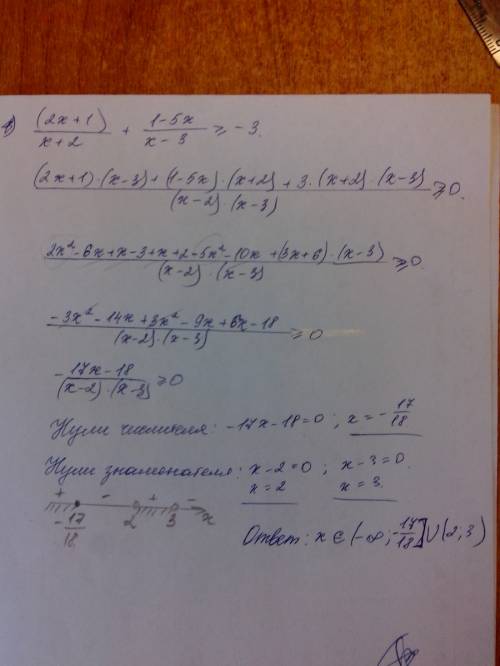 1) (2x+1)/(x+2) + (1-5x)/(x-3) ≥ -3.
((2x+1)·(x-3)+(1-5x)·(x+2)+3·(x+2)·(x-3))/((x-2)·(x-3)) ≥0.
(2x²-6x+x-3+x+2-5x²-10x+(3x+6)·(x-3))/((x-2)·(x-3)) ≥0.
(-3x²-14x+3x²-9x+6x-18)/((x-2)·(x-3)) ≥0
-(17x-18)/((x-2)·(x-3)) ≥0
Нули числителя: -17x-18=0; x=-17/18
Нули знаменателя: x-2=0; x-3=0.
x=2 x=3.
+ - + -
-17/18 2 3 x
Ответ: x∈(-∞;-17/18]∪(2;3)